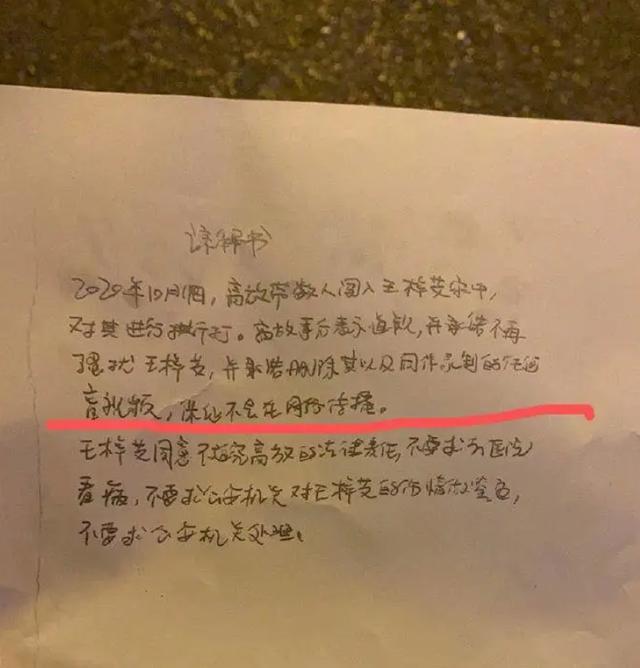 谅解书
2020年10月1日, 高放带数人闯入王梓芠家中,
对其进行殴打。高放事后表示道歉, 并承诺不再
骚扰王梓芠, 并承诺删除其以及同伴录制的任何
音视频, 保证不会在网络传播。
王梓芠同意不追究高放的法律责任, 不要求去医院
看病, 不要求公安机关对王梓芠的伤情做鉴定,
不要求公安机关处理。